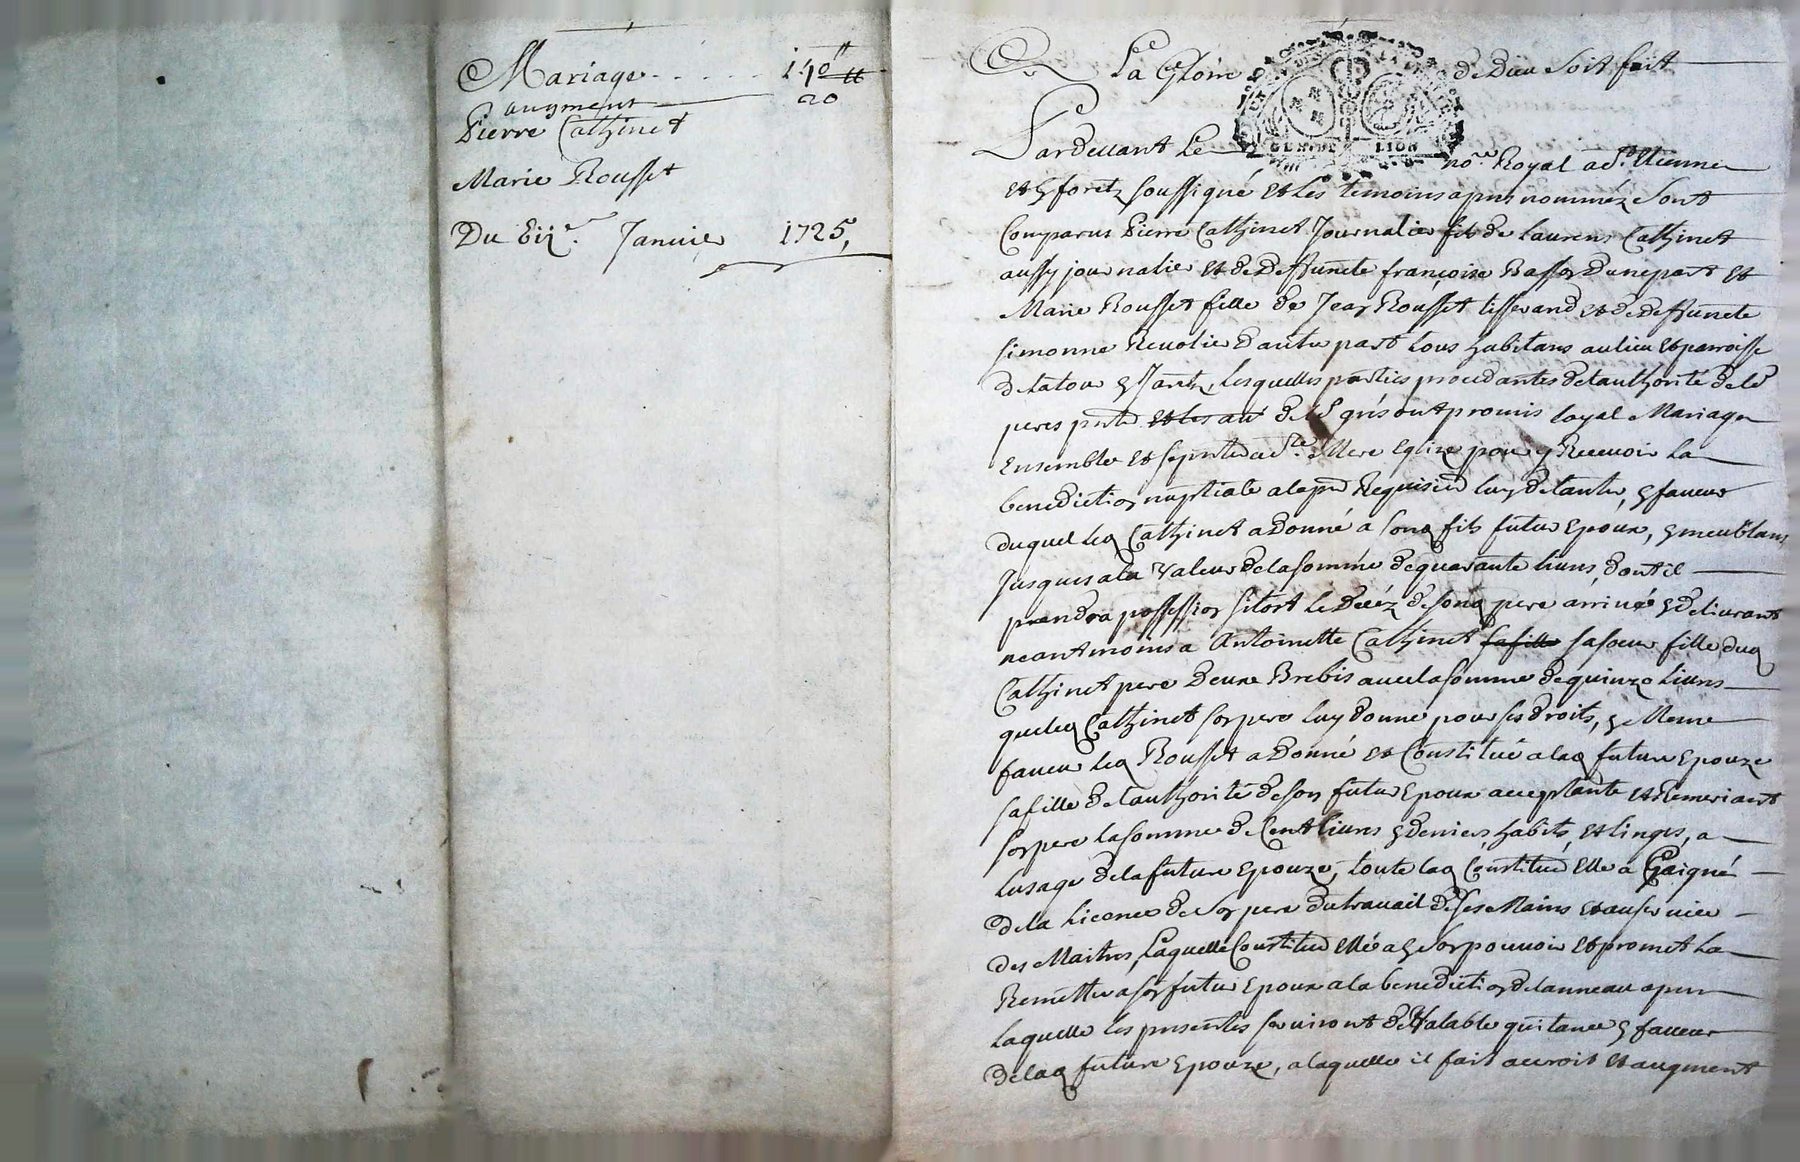 Mariage 140ᵗᵗ
augment 20
Pierre Cathinet
Marie Rousset
Du Janvier 1725,
La Gloire de Dieu soit fait
GENER LION
Pardevant Le noʳᵉ Royal a Vienne
et foretz soussigné et les temoins apres nomméz sont
Comparus Pierre Cathinet Journalier fils de Laurens Cathinet
aussy journalier et de Deffuncte françoise Basson Dune part et
Marie Rousset fille de Jean Rousset tisserand et de Deffuncte
simonne Revolier Dautre part tous habitans au lieu et parroisse
de latour Jarêtz, lesquelles parties procedantes de lauthorité de
peres ont promis loyal Mariage
Ensemble et se pnter a Sᵗᵉ Mere Eglize pour y Recevoir la
benediction nuptiale a la pᵉ Requisiõn lun de lautre, faveur
duquel led Cathinet a Donné a sond fils futur Epoux, meublans
Jusques a la Valeur de la somme de quarante livres, dont il
prendra possession sitost le Decéz de sond pere arrivé delivrant
neantmoins a Antoinette Cathinet sa fille sa soeur fille dud
Cathinet pere Deux Brebis avec la somme de quinze livres
que led Cathinet son pere luy donne pour ses droits, Meme
faveur led Rousset a Donné et Constitué a lad future Epouze
sa fille de lauthorité de son futur Epoux acceptante et Remeriant
son pere la somme de Cent livres deniers habits, et linges, a
lusage de la future Epouze, toute lad Constituõn Elle a Gaigné
de la licence de son pere du travail de ses Mains et au service
des Maitres, Laquelle Constituõn Elle a son pouvoir et promet la
Remettre a son futur Epoux a la benediction de lanneau apres
laquelle les presentes serviront de Valable quitance faveur
de lad future Epouze, a laquelle il fait accroit et augment